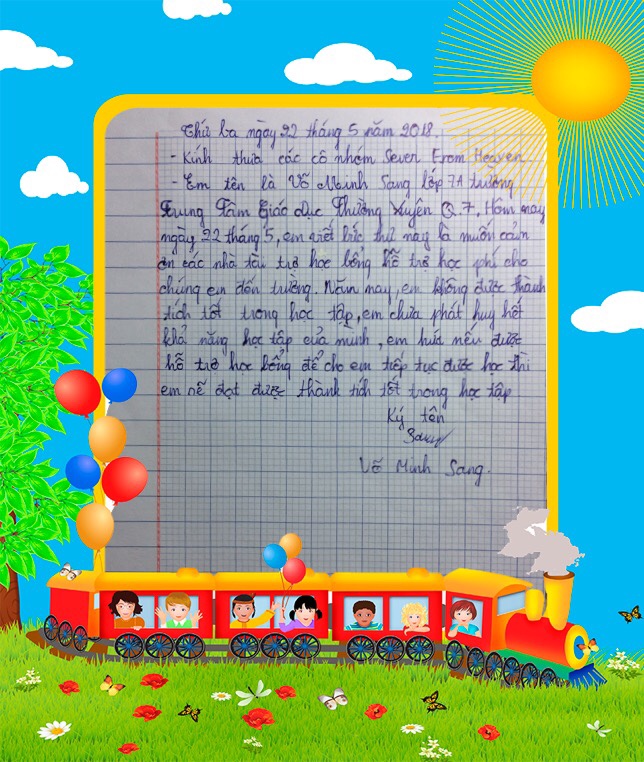 Thứ ba ngày 22 tháng 5 năm 2018.
- Kính thưa các cô nhóm Sever From Heaven
- Em tên là Võ Minh Sang lớp 7A trường
Trung Tâm Giáo dục Thường Xuyên Q.7, Hôm nay
ngày 22 tháng 5, em viết bức thư này là muốn cảm
ơn các nhà tài trợ học bổng hỗ trợ học phí cho
chúng em đến trường. Năm nay, em không được thành
tích tốt trong học tập, em chưa phát huy hết
khả năng học tập của mình, em hứa nếu được
hỗ trợ học bổng để cho em tiếp tục được học thì
em sẽ đạt được thành tích tốt trong học tập
Ký tên
Sang
Võ Minh Sang.